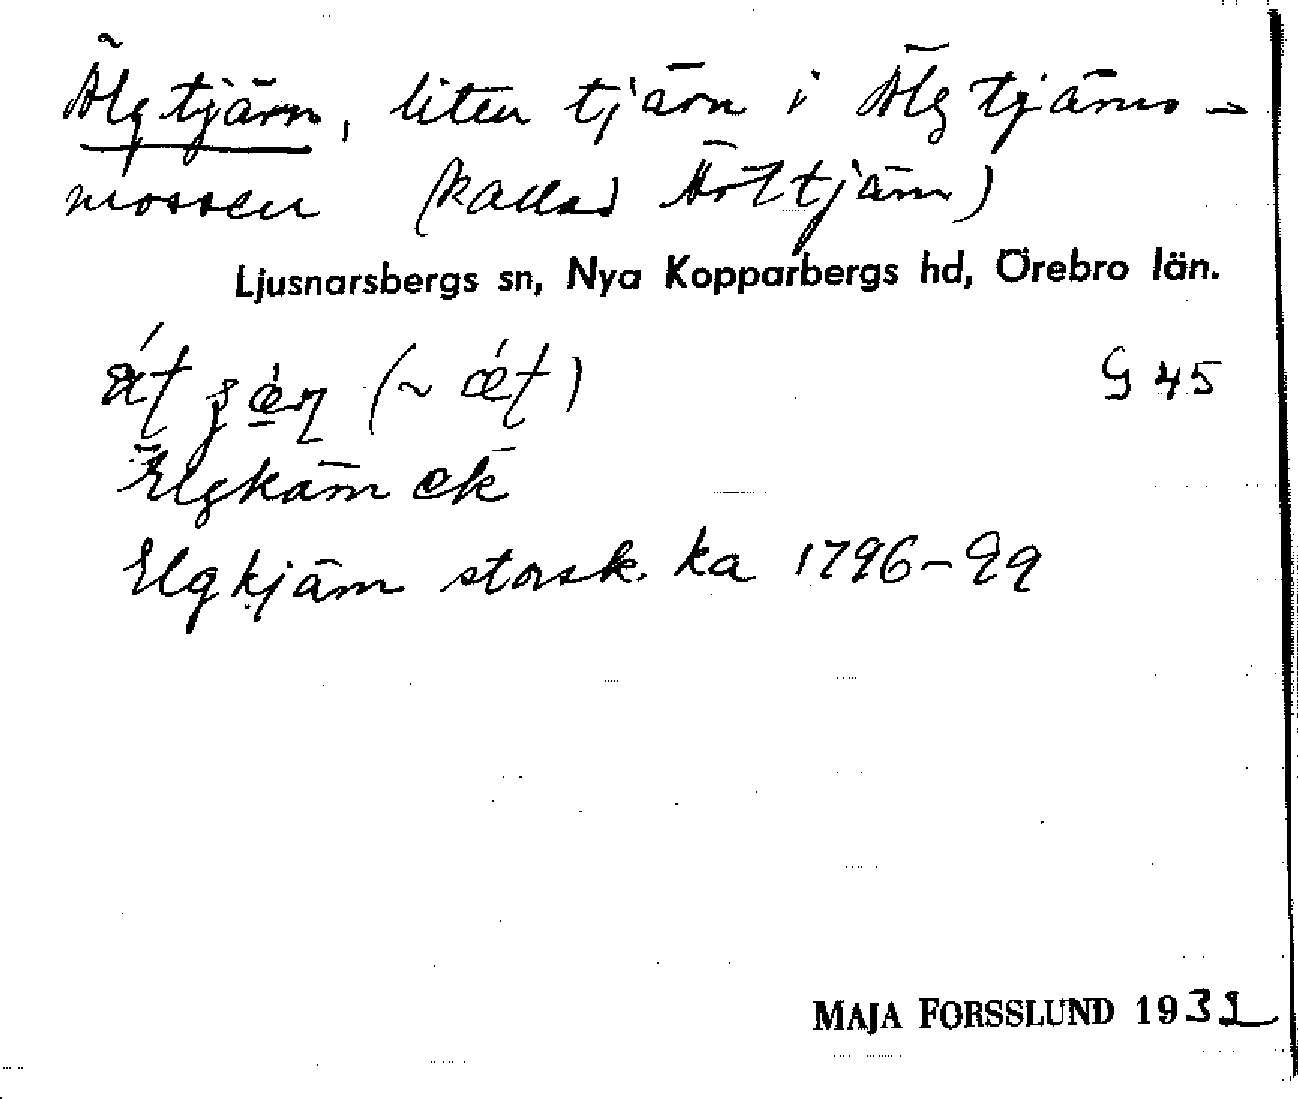 Älgtjärn, liten tjärn i Älgtjärns-
mossen (kallad Ärttjärn)
Ljusnarsbergs sn, Nya Kopparbergs hd, Örebro län.
G 45
Elgkärn ek
Elgkjärn storsk. ka 1796-99
MAJA FORSSLUND 1931